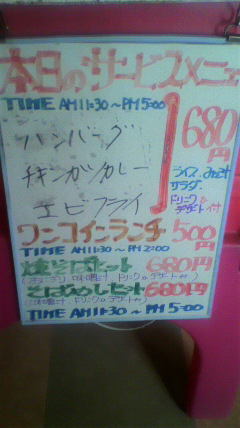 本日のサービスメニュー
TIME AM11:30～PM5:00
ハンバーグ
チキンカツカレー
エビフライ
680円
ライス みそ汁
サラダ
ドリンク
デザート付
ワンコインランチ 500円
TIME AM11:30～PM2:00
焼そばセット 680円
味噌汁 ドリンク デザート付
そばめしセット 680円
(味噌汁 ドリンク デザート付)
TIME AM11:30～PM5:00